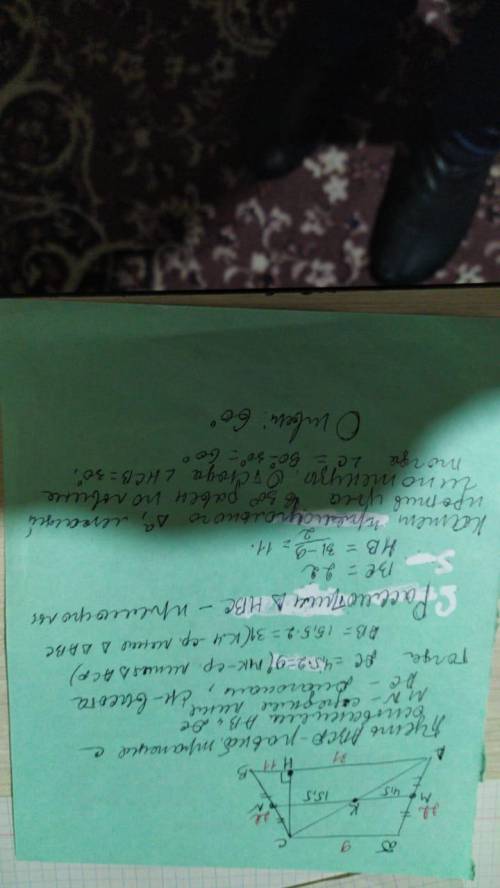 D 9 C
22 M 4,5 K 15,5 N 22
A 31 H 11 B
Пусть ABCD-равноб. трапеция с
основаниями AB и DC
MN - средняя линия
AC - диагональ, CH-высота
тогда DC = 4,5·2=9 (MK-ср. линия ACD)
AB = 15,5·2 = 31 (KN-ср. линия △ABC
Рассмотрим △HBC - прямоугольн
BC = 22
HB = 31-9/2 = 11.
катет прямоугольного △, лежащий
против угла в 30° равен половине
гипотенузы. Отсюда ∠HCB=30°,
тогда ∠C = 90°-30° = 60°
Ответ: 60°